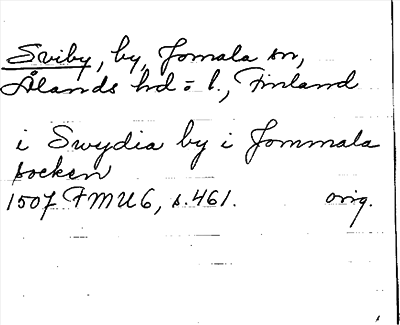 Sviby, by, Jomala sn,
Ålands hd = l., Finland
i Swydia by i Jommala
socken
1507 FMU 6, s. 461. orig.